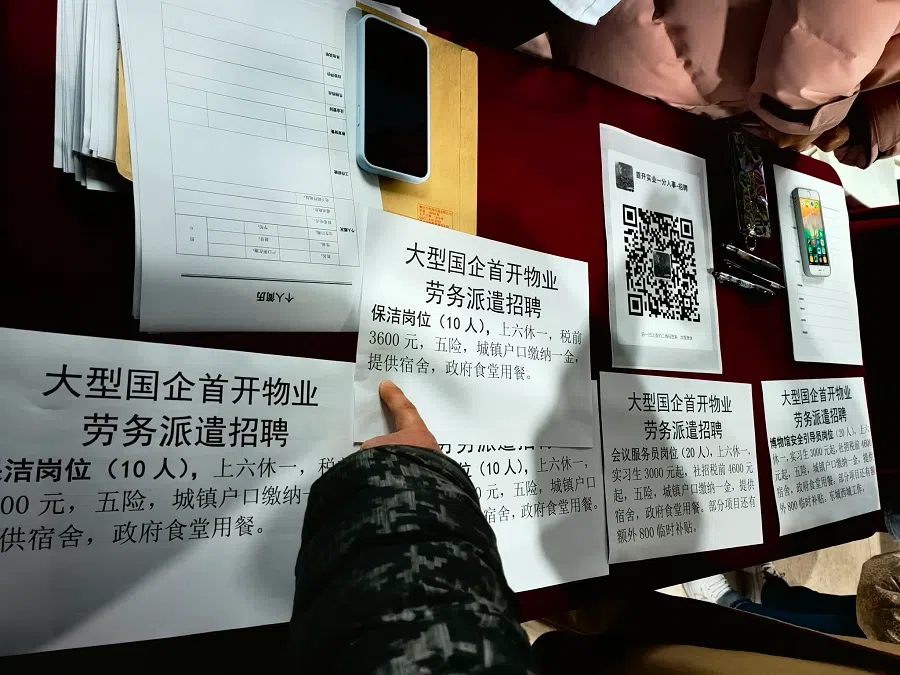 个人简历
首开实业一分人事-招聘
大型国企首开物业
劳务派遣招聘
保洁岗位（10 人），上六休一，税前
3600 元，五险，城镇户口缴纳一金，
提供宿舍，政府食堂用餐。
大型国企首开物业
劳务派遣招聘
洁岗位（10 人），上六休一，税
00 元，五险，城镇户口缴纳一
供宿舍，政府食堂用餐。
劳务派遣招聘
位（10 人），上六休一，税前
元，五险，城镇户口
宿舍，政府食堂用餐。
大型国企首开物业
劳务派遣招聘
会议服务员岗位（20 人），上六休一，
实习生 3000 元起，社招税前 4600 元
起，五险，城镇户口缴纳一金，提供
宿舍，政府食堂用餐。部分项目还有
额外 800 临时补贴。
大型国企首开物业
劳务派遣招聘
博物馆安全引导员岗位（20 人），上六
休一，实习生 3000 元起，社招税前 4600
元起，五险，城镇户口缴纳一金，提供
宿舍，政府食堂用餐。部分项目还有额
外 800 临时补贴。东城西城工作。